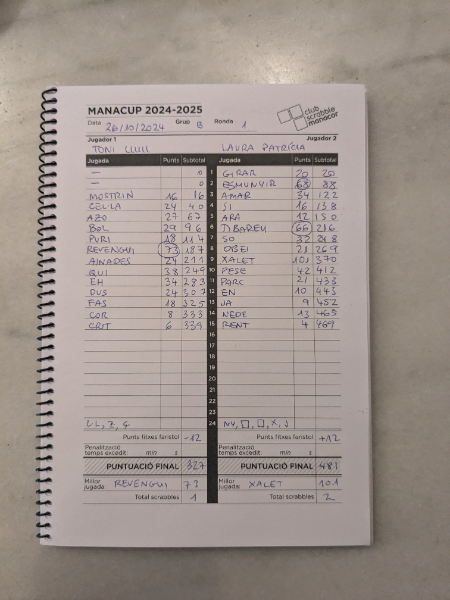 MANACUP 2024-2025
club scrabble manacor
Data 26/10/2024 Grup B Ronda 1
Jugador 1 Jugador 2
TONI LLULL LAURA PATRÍCIA
Jugada Punts Subtotal Jugada Punts Subtotal
— 0 1 GIRAR 20 20
— 0 2 ESMUNYIR 68 88
MOSTRIN 16 16 3 AMAR 34 122
CEL·LA 24 40 4 SI 16 138
AZO 27 67 5 ARA 12 150
BOL 29 96 6 66 216
PURI 18 114 7 SO 32 248
REVENGUI 73 187 8 OISEI 21 269
AINADES 24 211 9 XALET 101 370
QUI 38 249 10 PESE 42 412
EH 34 283 11 PARC 21 433
DUS 24 307 12 EN 10 443
FAS 18 325 13 UA 9 452
COR 8 333 14 NEDE 13 465
CRIT 6 339 15 RENT 4 469
16
17
18
19
20
21
22
23
24
Punts fitxes faristol -12 Punts fitxes faristol +12
Penalització temps excedit: min s Penalització temps excedit: min s
PUNTUACIÓ FINAL 327 PUNTUACIÓ FINAL 481
Millor jugada: REVENGUI 73 Millor jugada: XALET 101
Total scrabbles 1 Total scrabbles 2